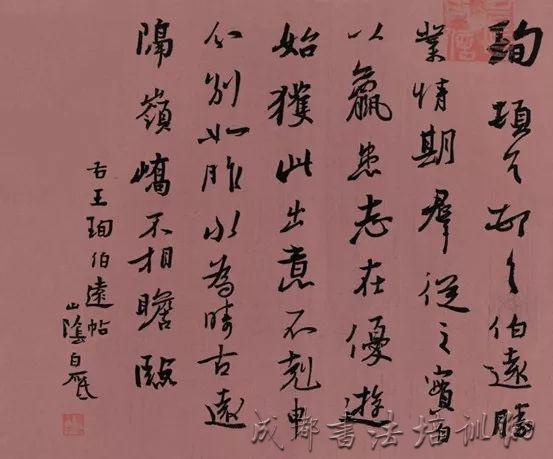 珣頓首頓首伯遠勝
業情期羣從之寶自
以羸患志在優遊
始獲此出意不剋申
分別如昨永為疇古遠
隔嶺嶠不相瞻臨
右王珣伯遠帖
山陰白砥
成都書法培训